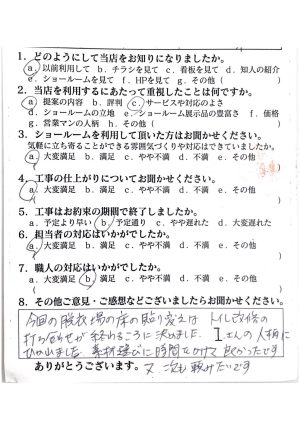 1. どのようにして当店をお知りになりましたか。
a. 以前利用して b. チラシを見て c. 看板を見て d. 知人の紹介
e. ショールームを見て f. HPを見て g. その他( )
2. 当店を利用するにあたって重視したことは何ですか。
a. 提案の内容 b. 評判 c. サービスや対応のよさ
d. ショールームの立地 e. ショールーム展示品の豊富さ f. 価格
g. 営業マンの人柄 h. その他( )
3. ショールームを利用して頂いた方はお聞かせください。
気軽に立ち寄ることができる雰囲気づくりや対応はできていましたか。
a. 大変満足 b. 満足 c. やや不満 d. 不満 e. その他
( )
4. 工事の仕上がりについてお聞かせください。
a. 大変満足 b. 満足 c. やや不満 d. 不満 e. その他
( )
5. 工事はお約束の期間で終了しましたか。
a. 予定より早い b. 予定通り c. やや遅れた d. 大変遅れた
6. 担当者の対応はいかがでしたか。
a. 大変満足 b. 満足 c. やや不満 d. 不満 e. その他
( )
7. 職人の対応はいかがでしたか。
a. 大変満足 b. 満足 c. やや不満 d. 不満 e. その他
( )
8. その他ご意見・ご感想などございましたらお聞かせください。
今回の脱衣場の床の貼り変えは トイレ改修の
打ち合わせが終わるころに決めました。 I さんの人柄に
ひかれました 素材選びに時間をかけて良かったです
ありがとうございます。 又 次も頼みたいです